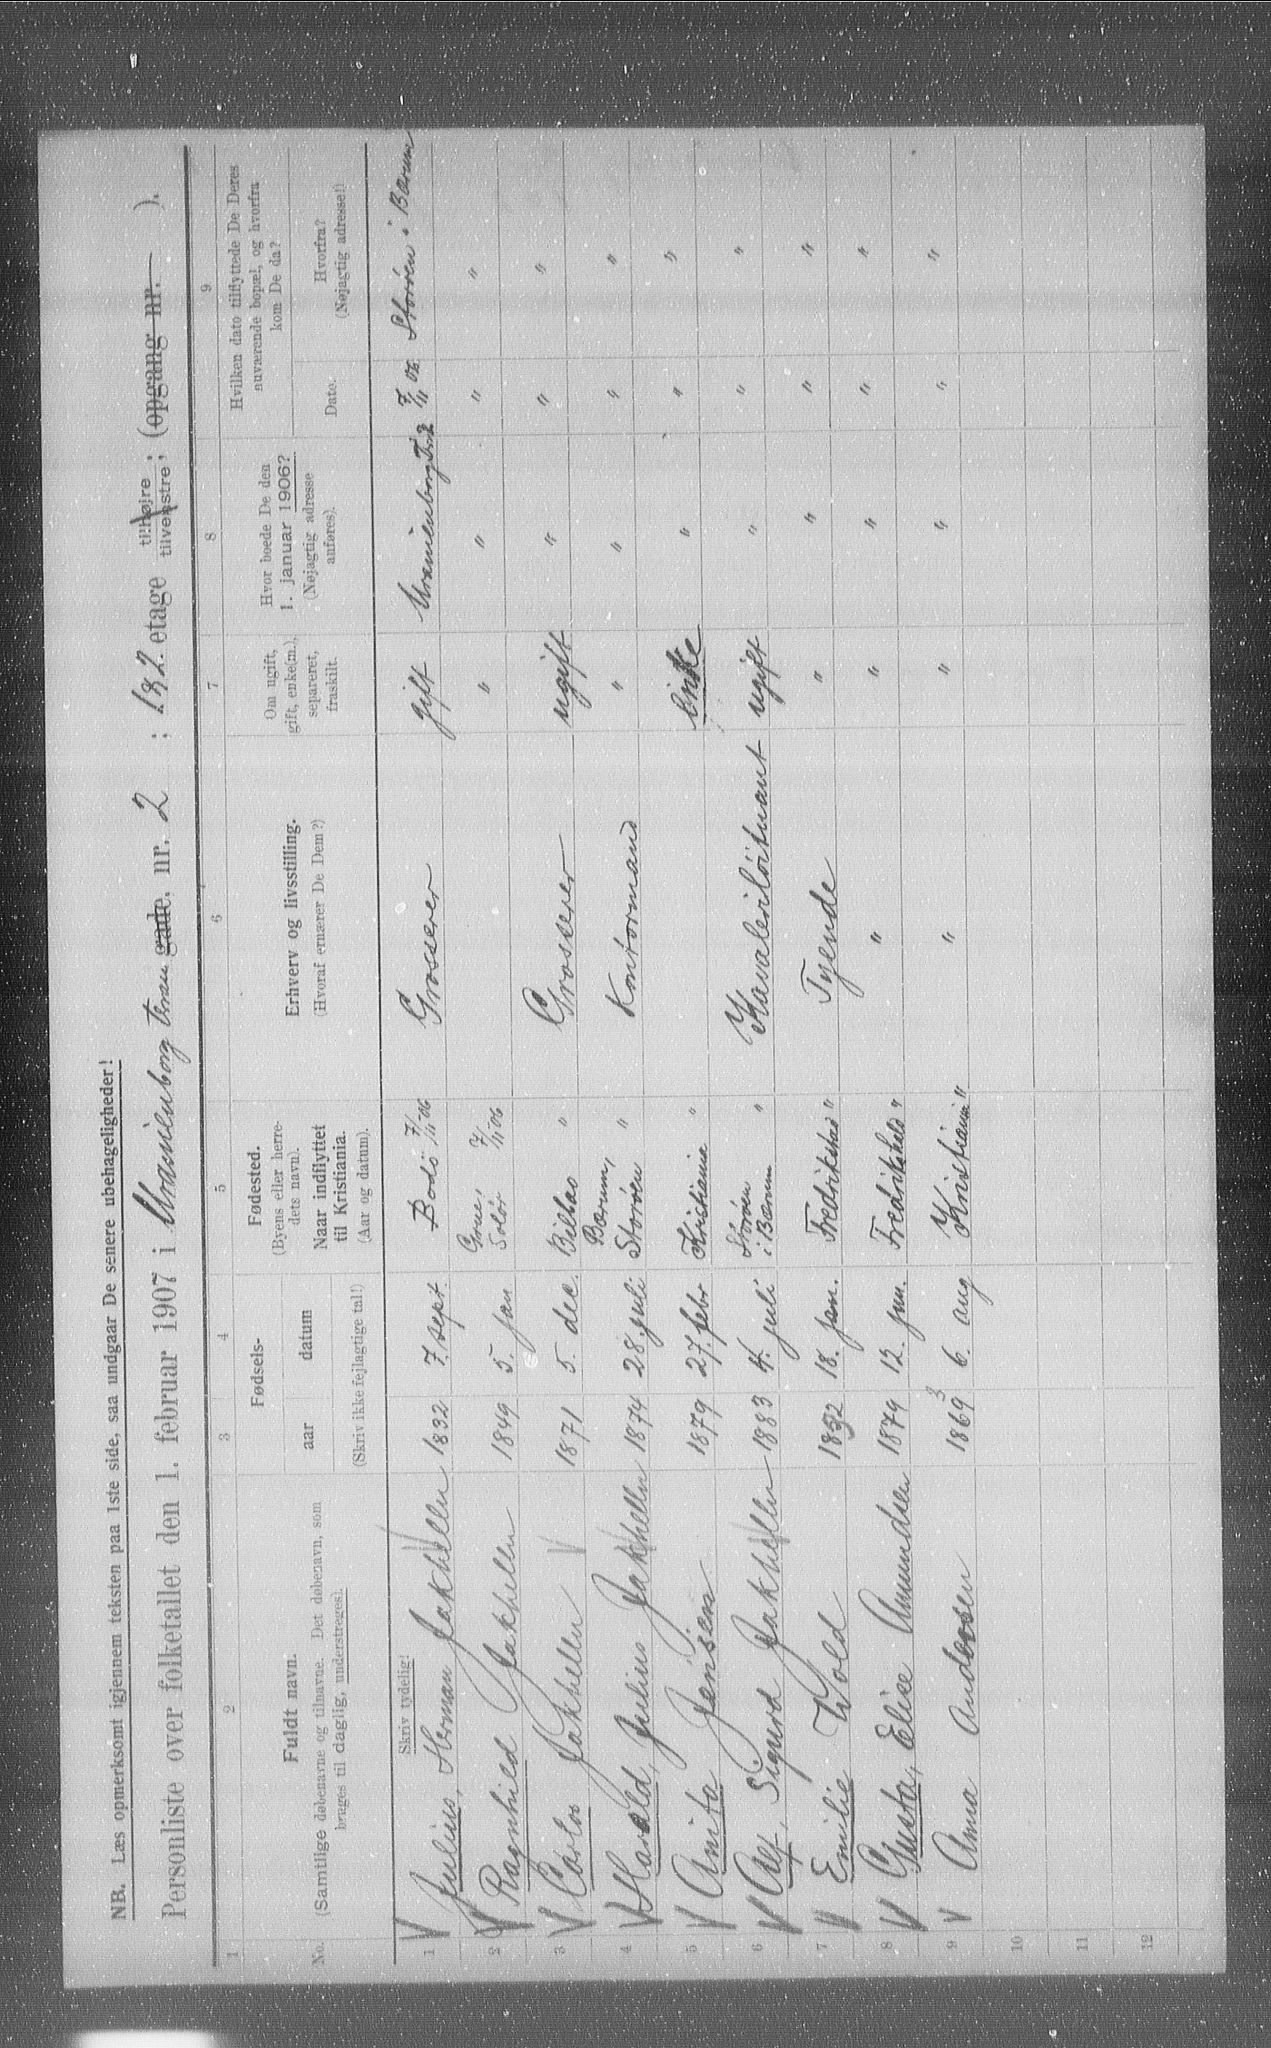 NB. Læs opmerksomt igjennem teksten paa 1ste side, saa undgaar De senere ubehageligheder!
Personliste over folketallet den 1. februar 1907 i Uranienborg terr. gade, nr. 2 ; 1 & 2. etage tilhøjre tilvenstre; (opgang nr. ).
1 2 3 4 5 6 7 8 9
No.
Fuldt navn.
(Samtlige døbenavne og tilnavne. Det døbenavn, som
bruges til daglig, understreges).
Fødsels-
aar datum
(Skriv ikke fejlagtige tal!)
Fødested.
(Byens eller herre-
dets navn).
Naar indflyttet
til Kristiania.
(Aar og datum).
Erhverv og livsstilling.
(Hvoraf ernærer De Dem?)
Om ugift,
gift, enke(m.),
separeret,
fraskilt.
Hvor boede De den
1. januar 1906?
(Nøjagtig adresse
anføres).
Hvilken dato tilflyttede De Deres
nuværende bopæl, og hvorfra
kom De da?
Date.
Hvorfra?
(Nøjagtig adresse!)
Skriv tydelig!
1 Julius, Herman Jakhelln 1832 7. sept. Bodö 7/11-06 Grosserer gift Uranienborg T. 2 7/11 02 Storöen i Bærum
2 Ragnhild Jakhelln 1849 5. jan Grue, Solör 7/11-06 " " " "
3 Carlos Jakhelln 1871 5. dec. Bilbao " Grosserer ugift " " "
4 Harald, Julius Jakhelln 1874 28. juli Bærum, Storöen " Kontormand " " " "
5 Anita Jensen 1879 27. febr Kristiania " Enke " " "
6 Alf, Sigurd Jakhelln 1883 4. juli Storöen i Bærum " Kavaleriløitnant ugift " " "
7 Emilie Wold 1882 18. jan. Fredrikstad " Tyende " " " "
8 Gusta, Elise Amundsen 1879 12. jun. Fredrikshald " " " " " "
9 Anna Andersen 1869 3 6. aug Kristiania " " " " " "
10
11
12